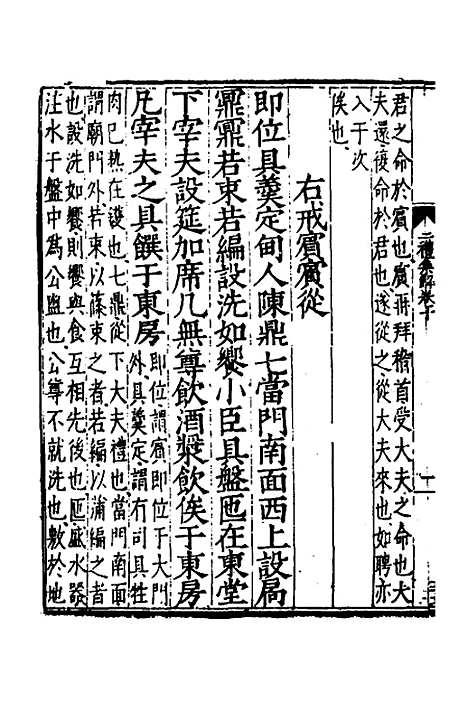 君之命於賓也賓再拜稽首受大夫之命也大
夫還復命於君也遂從之從大夫來也如聘亦
入于次
俟也
右戒賓賓從
即位具羹定甸人陳鼎七當門南面西上設扃
鼏鼏若束若編設洗如饗小臣具盤匜在東堂
下宰夫設筵加席几無尊飲酒漿飲俟于東房
凡宰夫之具饌于東房
即位謂賓即位于大門
外具羹定謂有司具牲
肉已熟在鑊也七鼎從下大夫禮也當門南面
謂廟門外若束以篠束之者若編以蒲編之者
也設洗如饗則饗與食互相先後也匜盛水器
注水于盤中為公盥也公尊不就洗也敷於地
二禮集解卷十